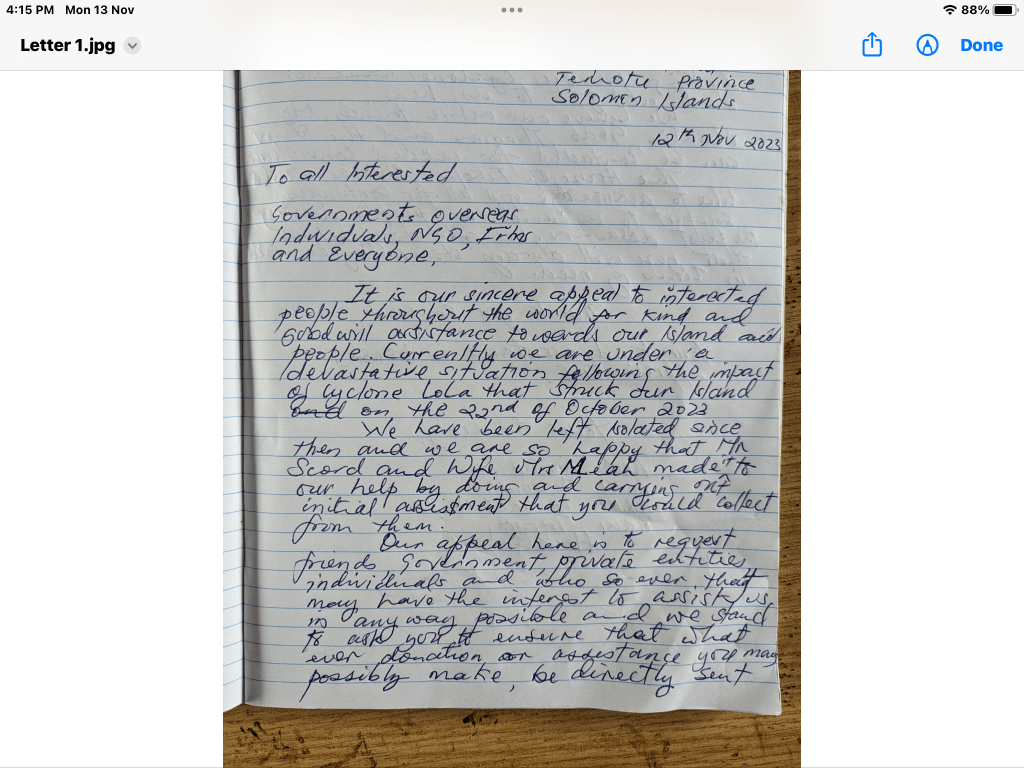 4:15 PM Mon 13 Nov
88%
Letter 1.jpg
Done
Temotu Province
Solomon Islands
12th Nov 2023
To all Interested
Governments overseas
Individuals, NGO, Firms
and Everyone,
It is our sincere appeal to interested
people throughout the world for kind and
Good will assistance towards our Island and
people. Currenltly we are under a
devastative situation following the impact
of Cyclone Lola that struck our Island
and on the 22nd of October 2023
We have been left isolated since
then and we are so happy that Mr
Scord and Wife Mrs Meah made it to
our help by doing and carrying out
initial assistment that you could collect
from them.
Our appeal here is to request
friends Government, private entities,
individuals and who so ever that
may have the interest to assist us
in any way possible and we stand
to ask you to ensure that what
ever donation or assistance you may
possibly make, be directly sent